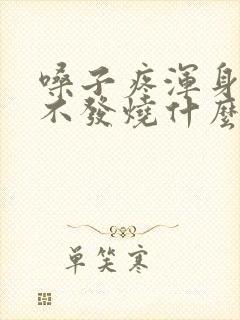 嗓子疼渾身
不發燒什麼
單笑寒